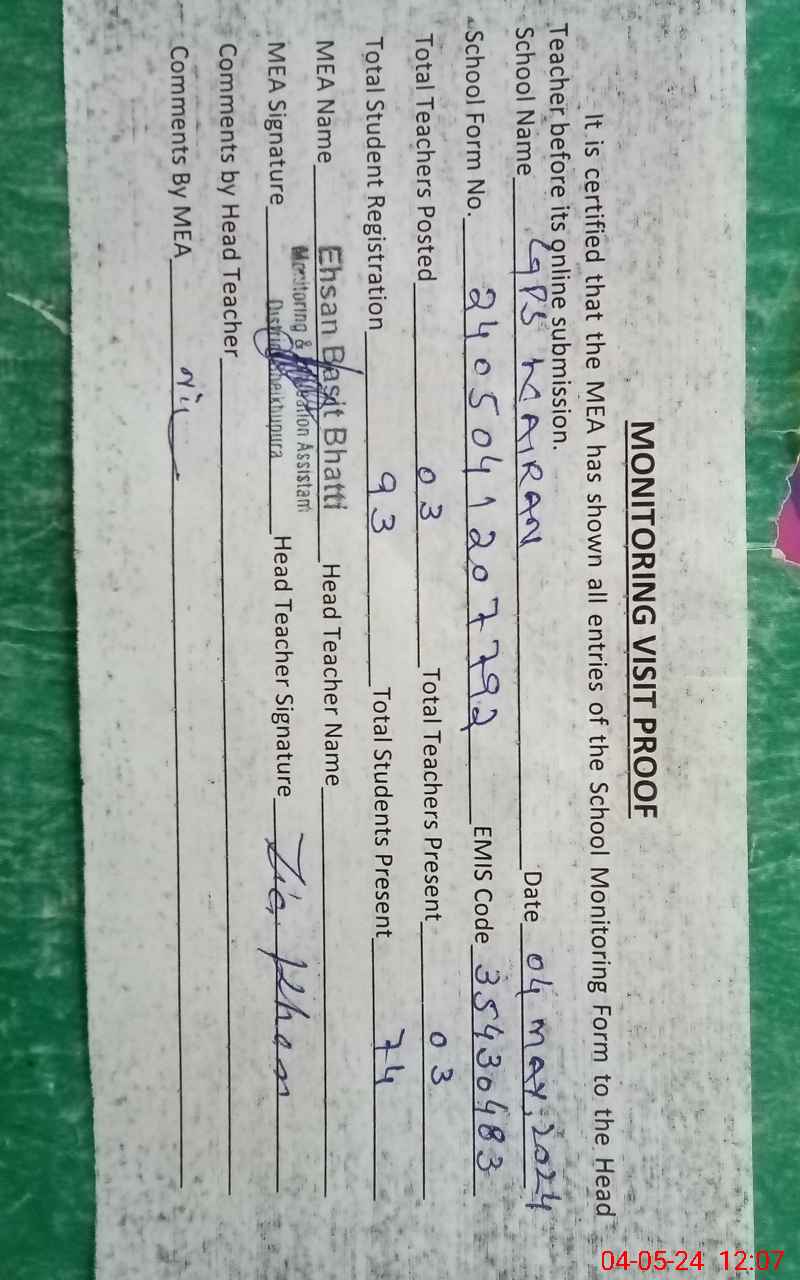 MONITORING VISIT PROOF
It is certified that the MEA has shown all entries of the School Monitoring Form to the Head
Teacher before its online submission.
School Name GPS MAIRAN Date 04 MAY, 2024
School Form No. 2405041207792 EMIS Code 35430483
Total Teachers Posted 03 Total Teachers Present 03
Total Student Registration 93 Total Students Present 74
MEA Name Ehsan Basit Bhatti Head Teacher Name
Monitoring & Assistant
MEA Signature District Sheikhupura Head Teacher Signature Zia Khan
Comments by Head Teacher
Comments By MEA Nil
04-05-24 12:07